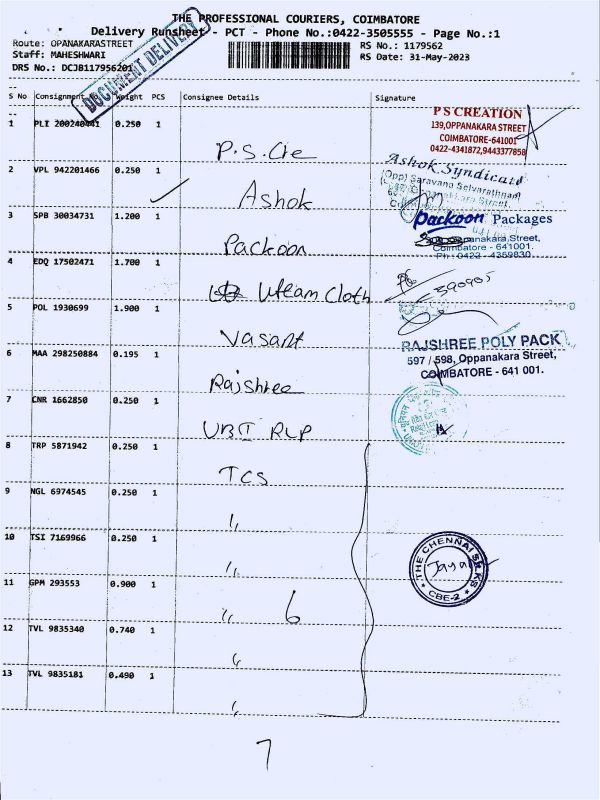 THE PROFESSIONAL COURIERS, COIMBATORE
Delivery Runsheet - PCT - Phone No.:0422-3505555 - Page No.:1
Route: OPANAKARASTREET
RS No.: 1179562
Staff: MAHESHWARI
RS Date: 31-May-2023
DRS No.: DCJB117956201
DOCUMENT DELIVERY
S No Consignment No Weight PCS Consignee Details Signature
1 PLI 200240441 0.250 1 P.S.Cre
P S CREATION
139,OPPANAKARA STREET
COIMBATORE-641001
0422-4341872,9443377858
2 VPL 942201466 0.250 1 Ashok
Ashok Syndicate
(Opp) Saravana Selvarathnam
3 SPB 30034731 1.200 1 Packoon
Packoon Packages
Oppanakara Street,
Coimbatore - 641001.
Ph : 0422 - 4369830
4 EDQ 17502471 1.700 1 Uttam Cloth
390905
5 POL 1930699 1.900 1 Vasant
6 MAA 298250884 0.195 1 Rajshree
RAJSHREE POLY PACK
597 / 598, Oppanakara Street,
COIMBATORE - 641 001.
7 CNR 1662850 0.250 1 UBI RLP
8 TRP 5871942 0.250 1 TCS
9 NGL 6974545 0.250 1 "
10 TSI 7169966 0.250 1 "
THE CHENNAI SILKS
Jaya
CBE-2
11 GPM 293553 0.900 1 " 6
12 TVL 9835340 0.740 1 "
13 TVL 9835181 0.490 1 "
7